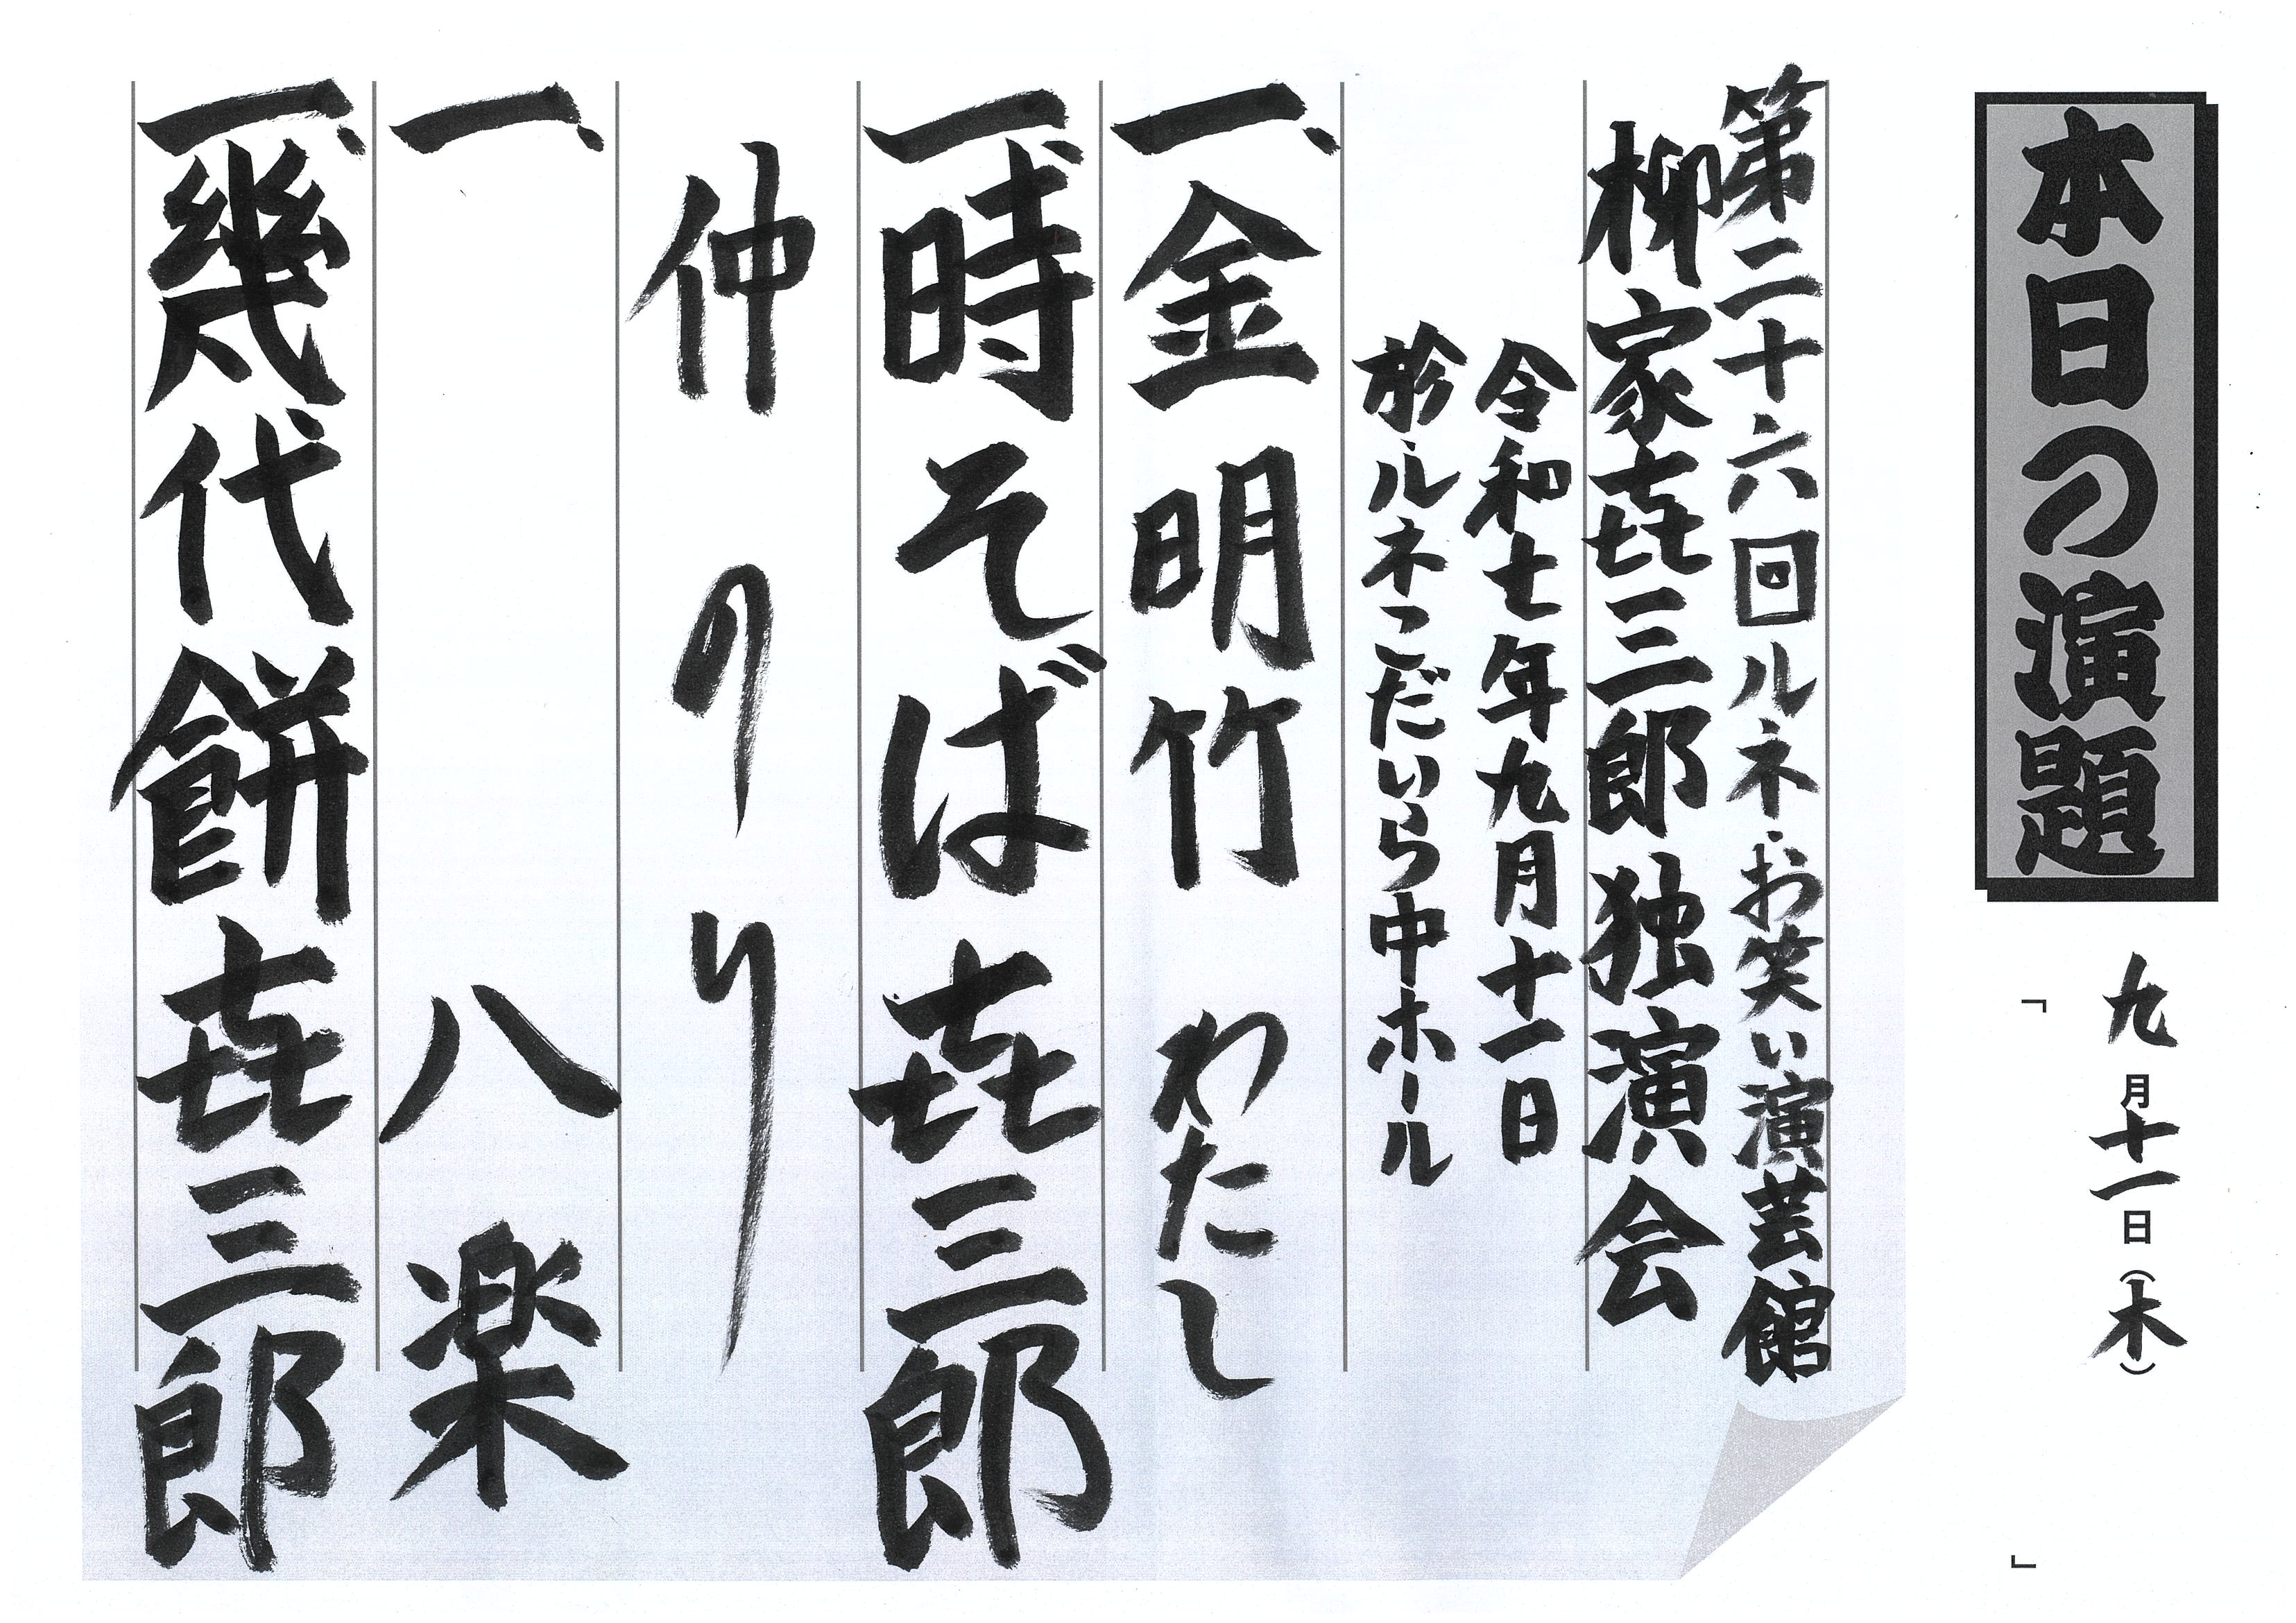 本日の演題
九月十一日(木)
「　」
第二十六回ルネ・お笑い演芸館
柳家㐂三郎独演会
令和七年九月十一日
於・ルネこだいら中ホール
一、金明竹 わたし
一、時そば 㐂三郎
仲のり
一、 八楽
一、幾代餅 㐂三郎